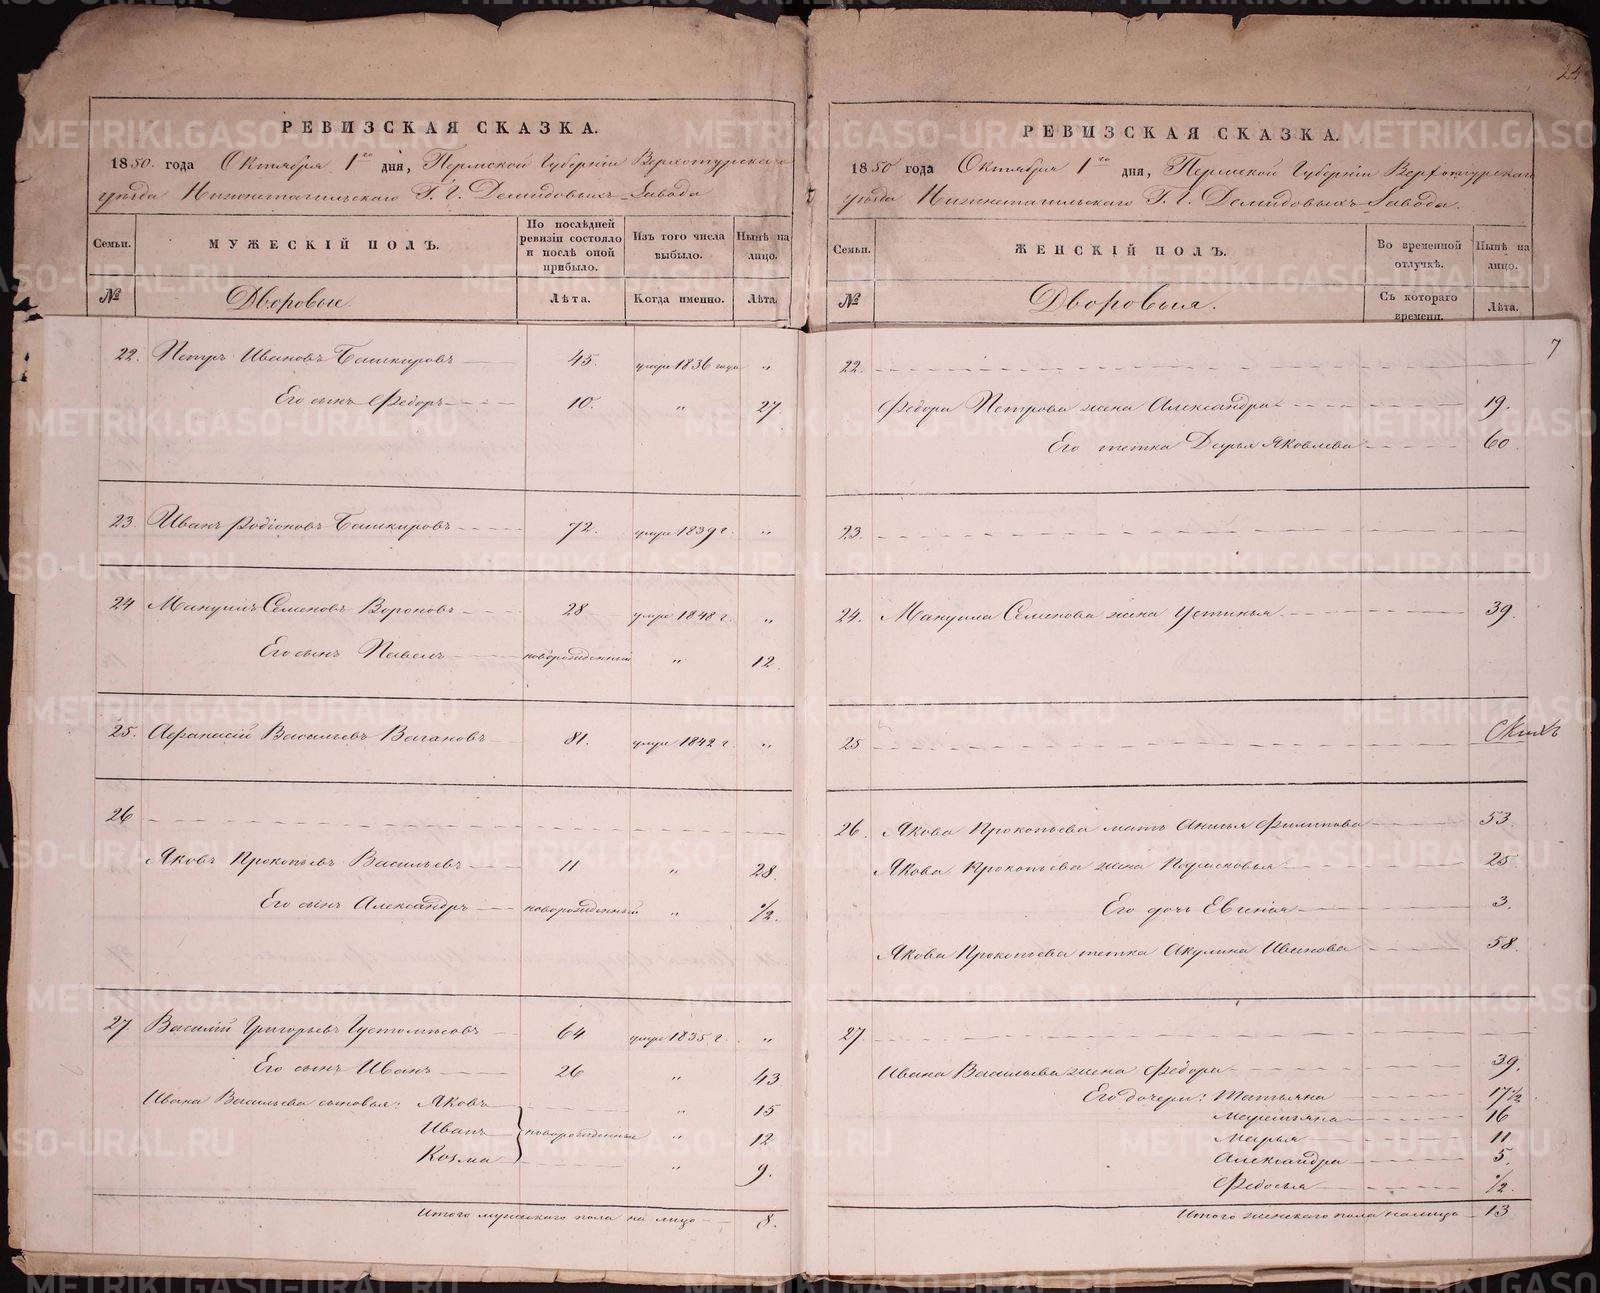 24
РЕВИЗСКАЯ СКАЗКА.
1850. года Октября 1го дня, Пермской Губерніи Верхотурскаго
уѣзда Нижнетагильскаго Г. Г. Демидовыхъ Завода
Семьи. МУЖЕСКІЙ ПОЛЪ. По послѣдней ревизіи состояло и послѣ оной прибыло. Изъ того числа выбыло. Нынѣ на лицо.
№ Дворовые. Лѣта. Когда именно. Лѣта
22. Петръ Ивановъ Башкировъ 45. умре 1836 года „
Его сынъ Федоръ 10. „ 27.
23. Иванъ Родіоновъ Башкировъ 72. умре 1839 г. „
24 Мануилъ Семеновъ Вороновъ 28 умре 1848 г. „
Его сынъ Павелъ новорожденный „ 12
25. Афанасій Васильевъ Вагановъ 81. умре 1842 г. „
26
Яковъ Прокопьевъ Васильевъ 11 „ 28.
Его сынъ Александръ новорожденный „ 1/2.
27. Василій Григорьевъ Густомѣсовъ 64 умре 1835 г. „
Его сынъ Иванъ 26 „ 43
Ивана Васильева сыновья: Яковъ „ 15
Иванъ новорожденные „ 12
Козма „ 9.
Итого мужескаго пола на лицо 8.
РЕВИЗСКАЯ СКАЗКА.
1850 года Октября 1го дня, Пермской Губерніи Верхотурскаго
уѣзда Нижнетагильскаго Г. Г. Демидовыхъ Завода.
Семьи. ЖЕНСКІЙ ПОЛЪ. Во временной отлучкѣ. Нынѣ на лицо.
№ Дворовыя. Съ котораго времени. Лѣта.
7
22.
Федора Петрова жена Александра 19.
Его тетка Дарья Яковлева 60.
23.
24. Мануила Семенова жена Устинья 39.
25
26. Якова Прокопьева мать Анисья Филипова 53
Якова Прокопьева жена Парасковья 25.
Его дочь Евгенія 3.
Якова Прокопьева тетка Акулина Иванова 58.
27.
Ивана Васильева жена Федора 39.
Его дочери: Татьяна 17 1/2
Маремьяна 16
Марья 11
Александра 5.
Федосья 1/2.
Итого женскаго пола на лицо 13
METRIKI.GASO-URAL.RU